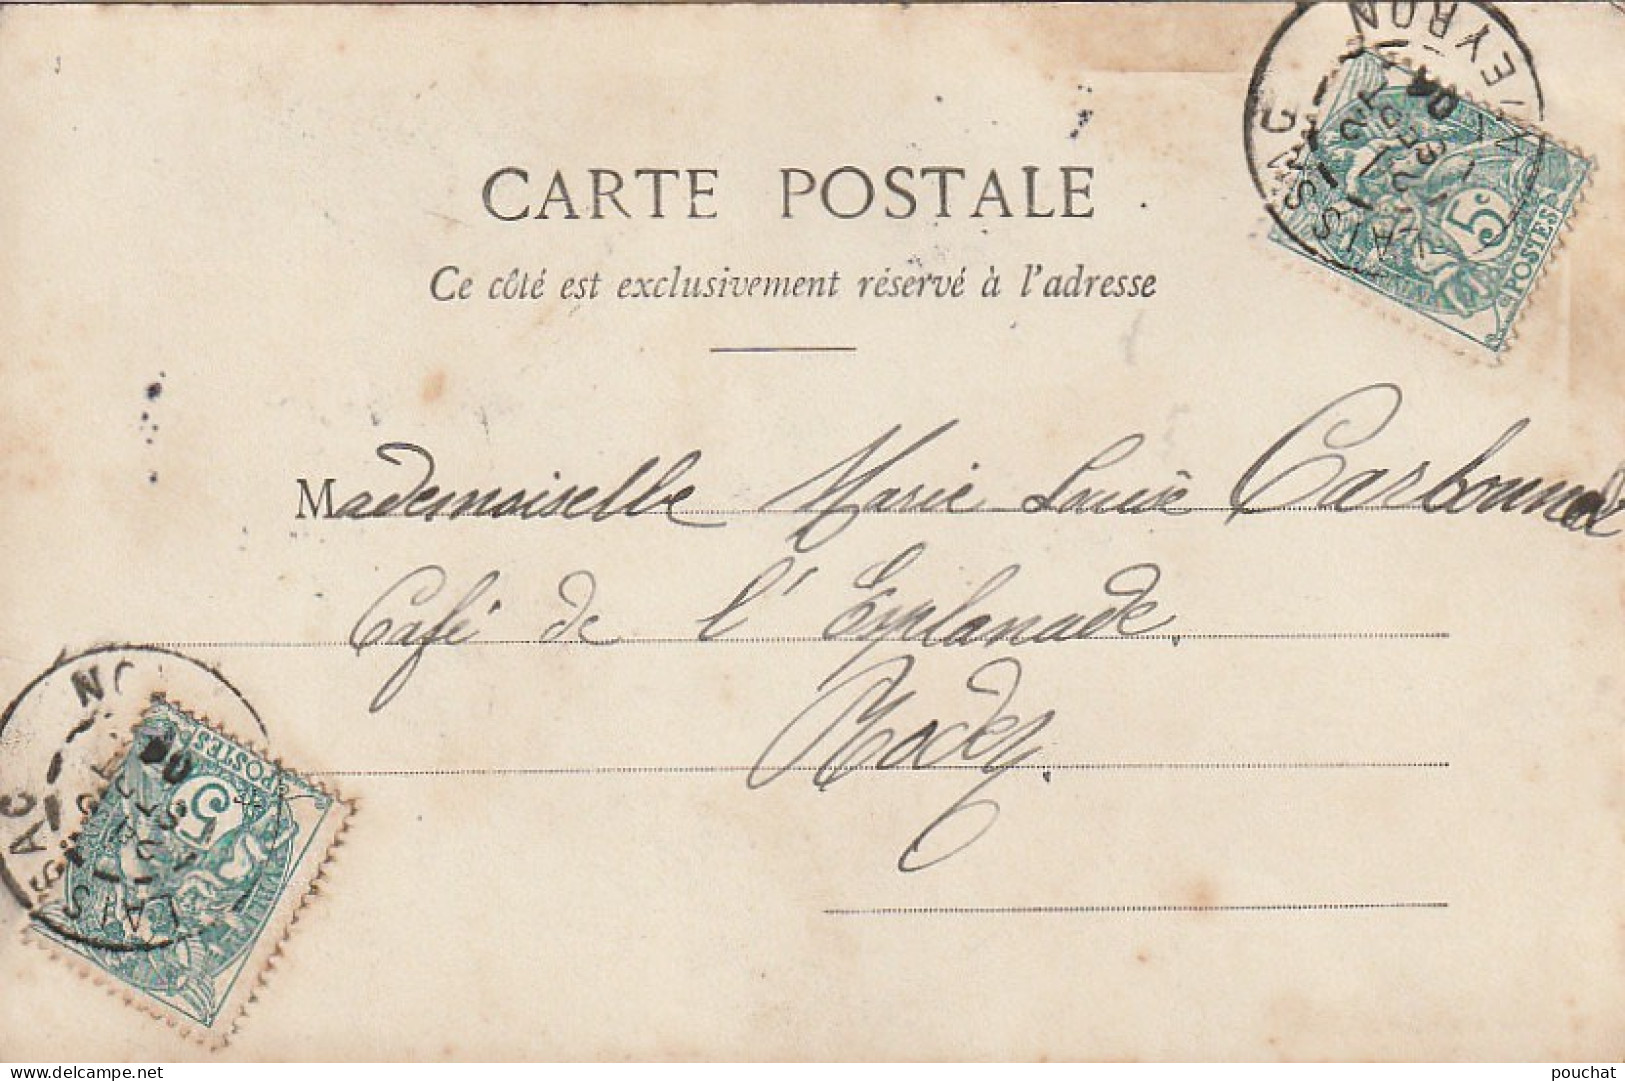 CARTE POSTALE
Ce côté est exclusivement réservé à l'adresse
Mademoiselle Marie Louise Carbonnel
Café de l'Esplanade.
Rodez.
LAISSAC
AVEYRON
SEPT
04
5c
POSTES
LAISSAC
04
5c
POSTES
www.delcampe.net
pouchat